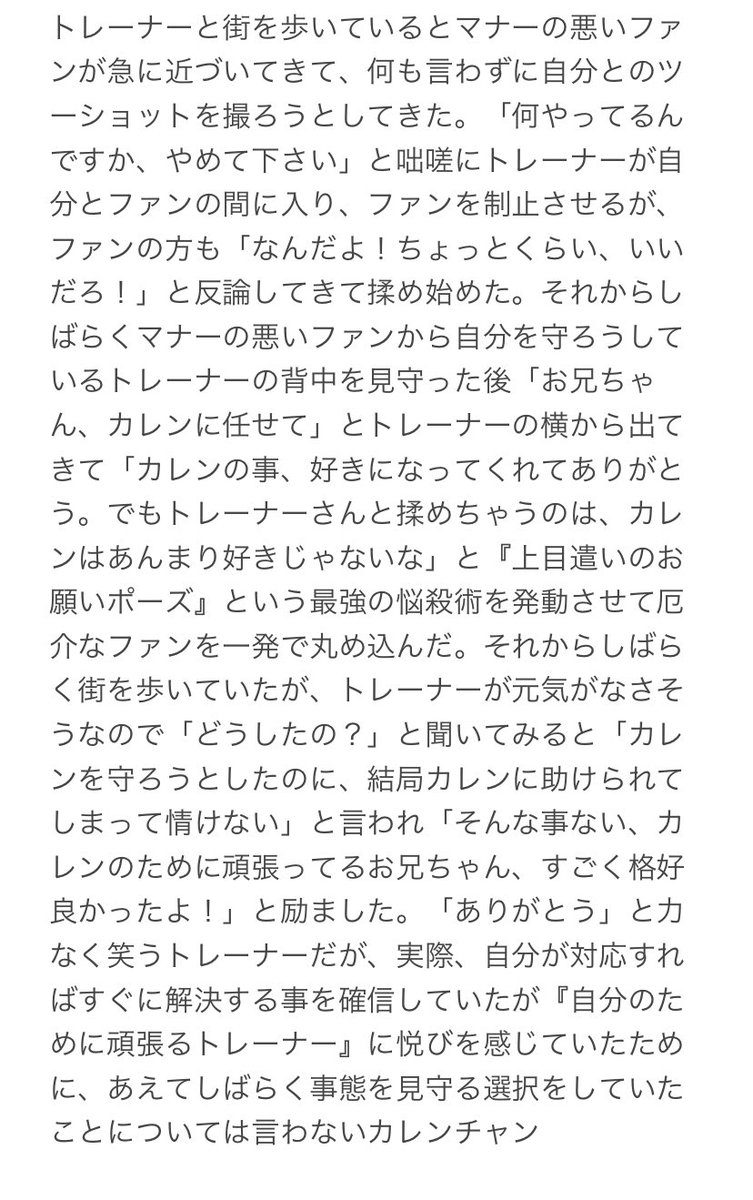 トレーナーと街を歩いているとマナーの悪いファ
ンが急に近づいてきて、何も言わずに自分とのツ
ーショットを撮ろうとしてきた。「何やってるん
ですか、やめて下さい」と咄嗟にトレーナーが自
分とファンの間に入り、ファンを制止させるが、
ファンの方も「なんだよ！ちょっとくらい、いい
だろ！」と反論してきて揉め始めた。それからし
ばらくマナーの悪いファンから自分を守ろうして
いるトレーナーの背中を見守った後「お兄ちゃ
ん、カレンに任せて」とトレーナーの横から出て
きて「カレンの事、好きになってくれてありがと
う。でもトレーナーさんと揉めちゃうのは、カレ
ンはあんまり好きじゃないな」と『上目遣いのお
願いポーズ』という最強の悩殺術を発動させて厄
介なファンを一発で丸め込んだ。それからしばら
く街を歩いていたが、トレーナーが元気がなさそ
うなので「どうしたの？」と聞いてみると「カレ
ンを守ろうとしたのに、結局カレンに助けられて
しまって情けない」と言われ「そんな事ない、カ
レンのために頑張ってるお兄ちゃん、すごく格好
良かったよ！」と励ました。「ありがとう」と力
なく笑うトレーナーだが、実際、自分が対応すれ
ばすぐに解決する事を確信していたが『自分のた
めに頑張るトレーナー』に悦びを感じていたため
に、あえてしばらく事態を見守る選択をしていた
ことについては言わないカレンチャン